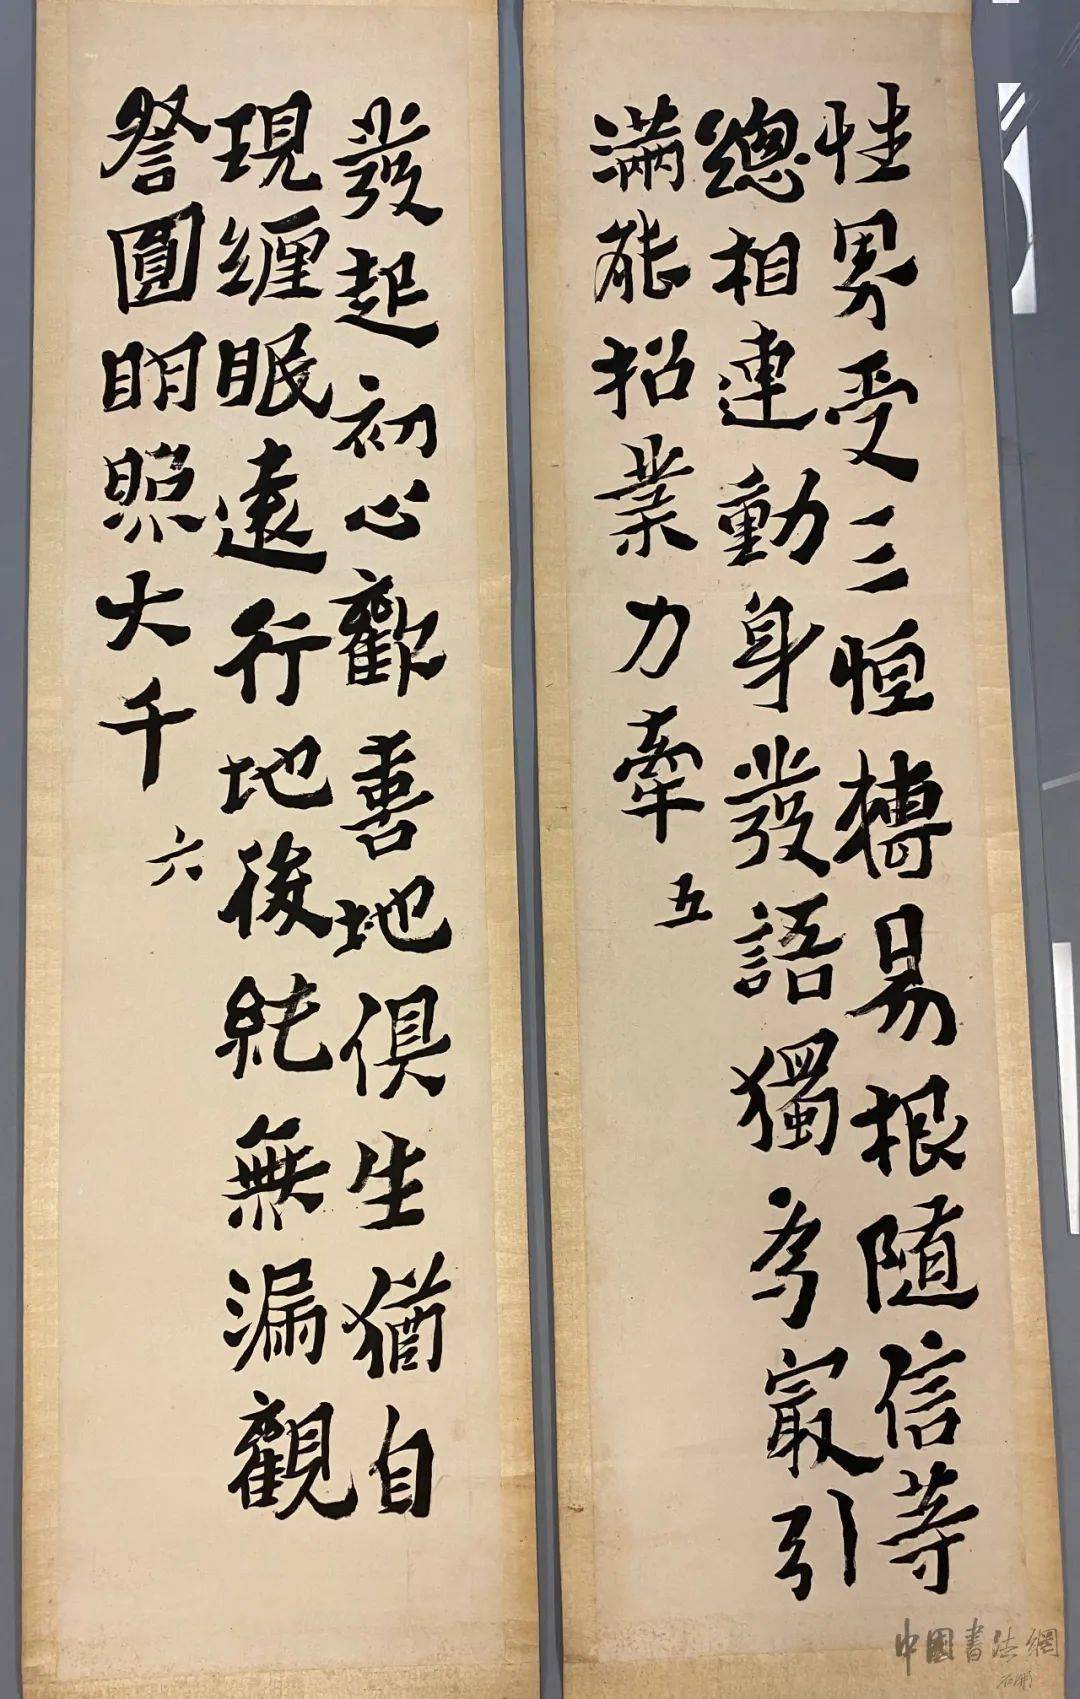 性界受三恒轉易根隨信等
總相連動身發語獨為冣引
滿能招業力牽 五
發起初心歡喜地俱生猶自
現纏眠遠行地後純無漏觀
詧圓明照大千 六
中國書法網